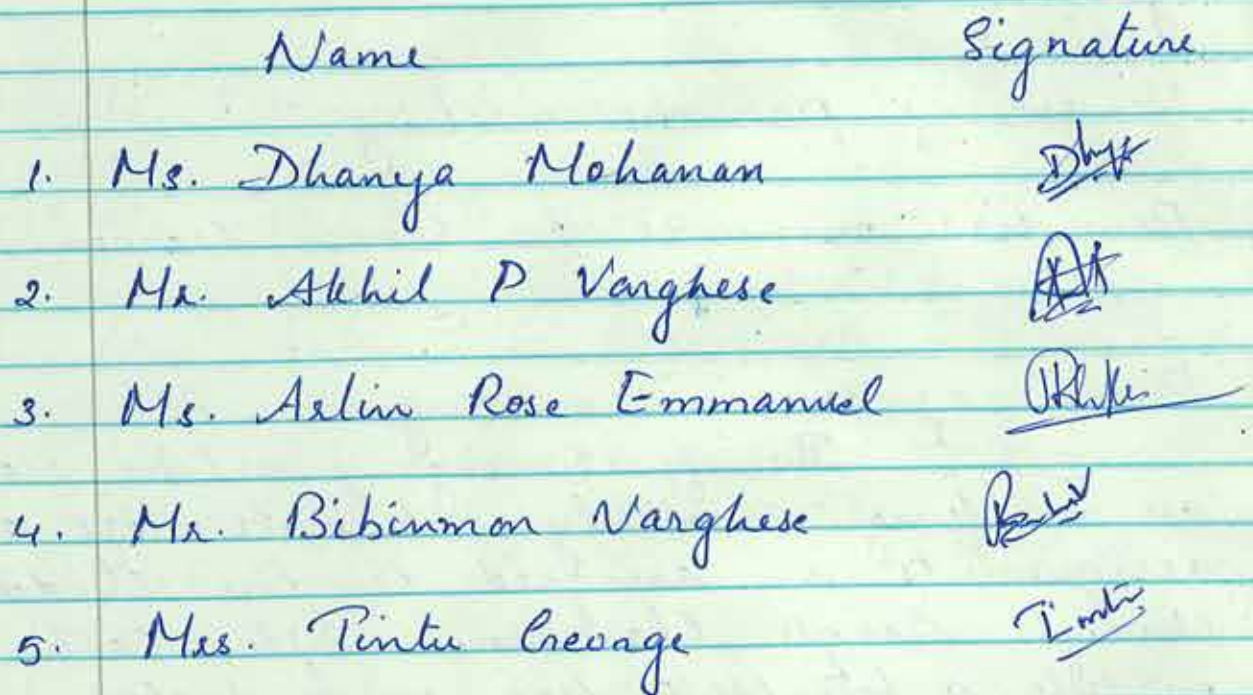 Name Signature
1. Ms. Dhanya Mohanan
2. Mr. Akhil P Varghese
3. Ms. Arlin Rose Emmanuel
4. Mr. Bibinmon Varghese
5. Mrs. Tintu George